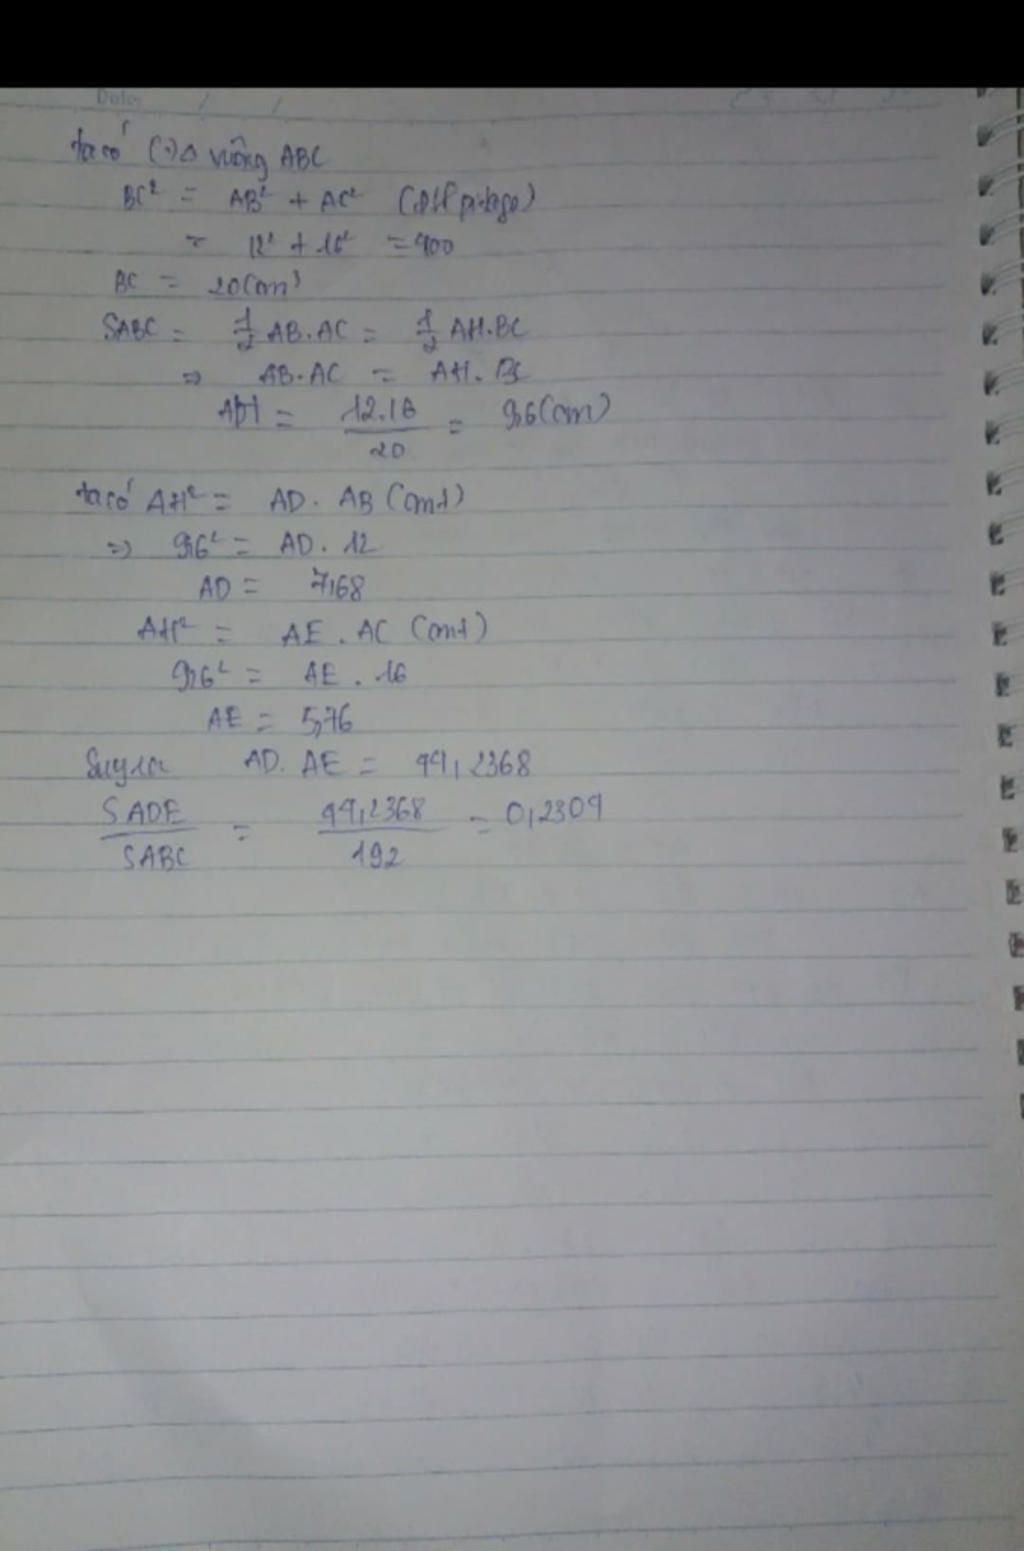 Date: / /
ta có (.) Δ vuông ABC
BC² = AB² + AC² (ĐLí pitago)
= 12² + 16² = 400
BC = 20(cm)
SABC = 1/2 AB.AC = 1/2 AH.BC
=> AB.AC = AH.BC
AH = 12.16/20 = 9,6(cm)
ta có AH² = AD.AB (cmt)
=> 9,6² = AD.12
AD = 7,68
AH² = AE.AC (cmt)
9,6² = AE.16
AE = 5,76
Suy ra AD.AE = 44,2368
SADE/SABC = 44,2368/192 = 0,2304